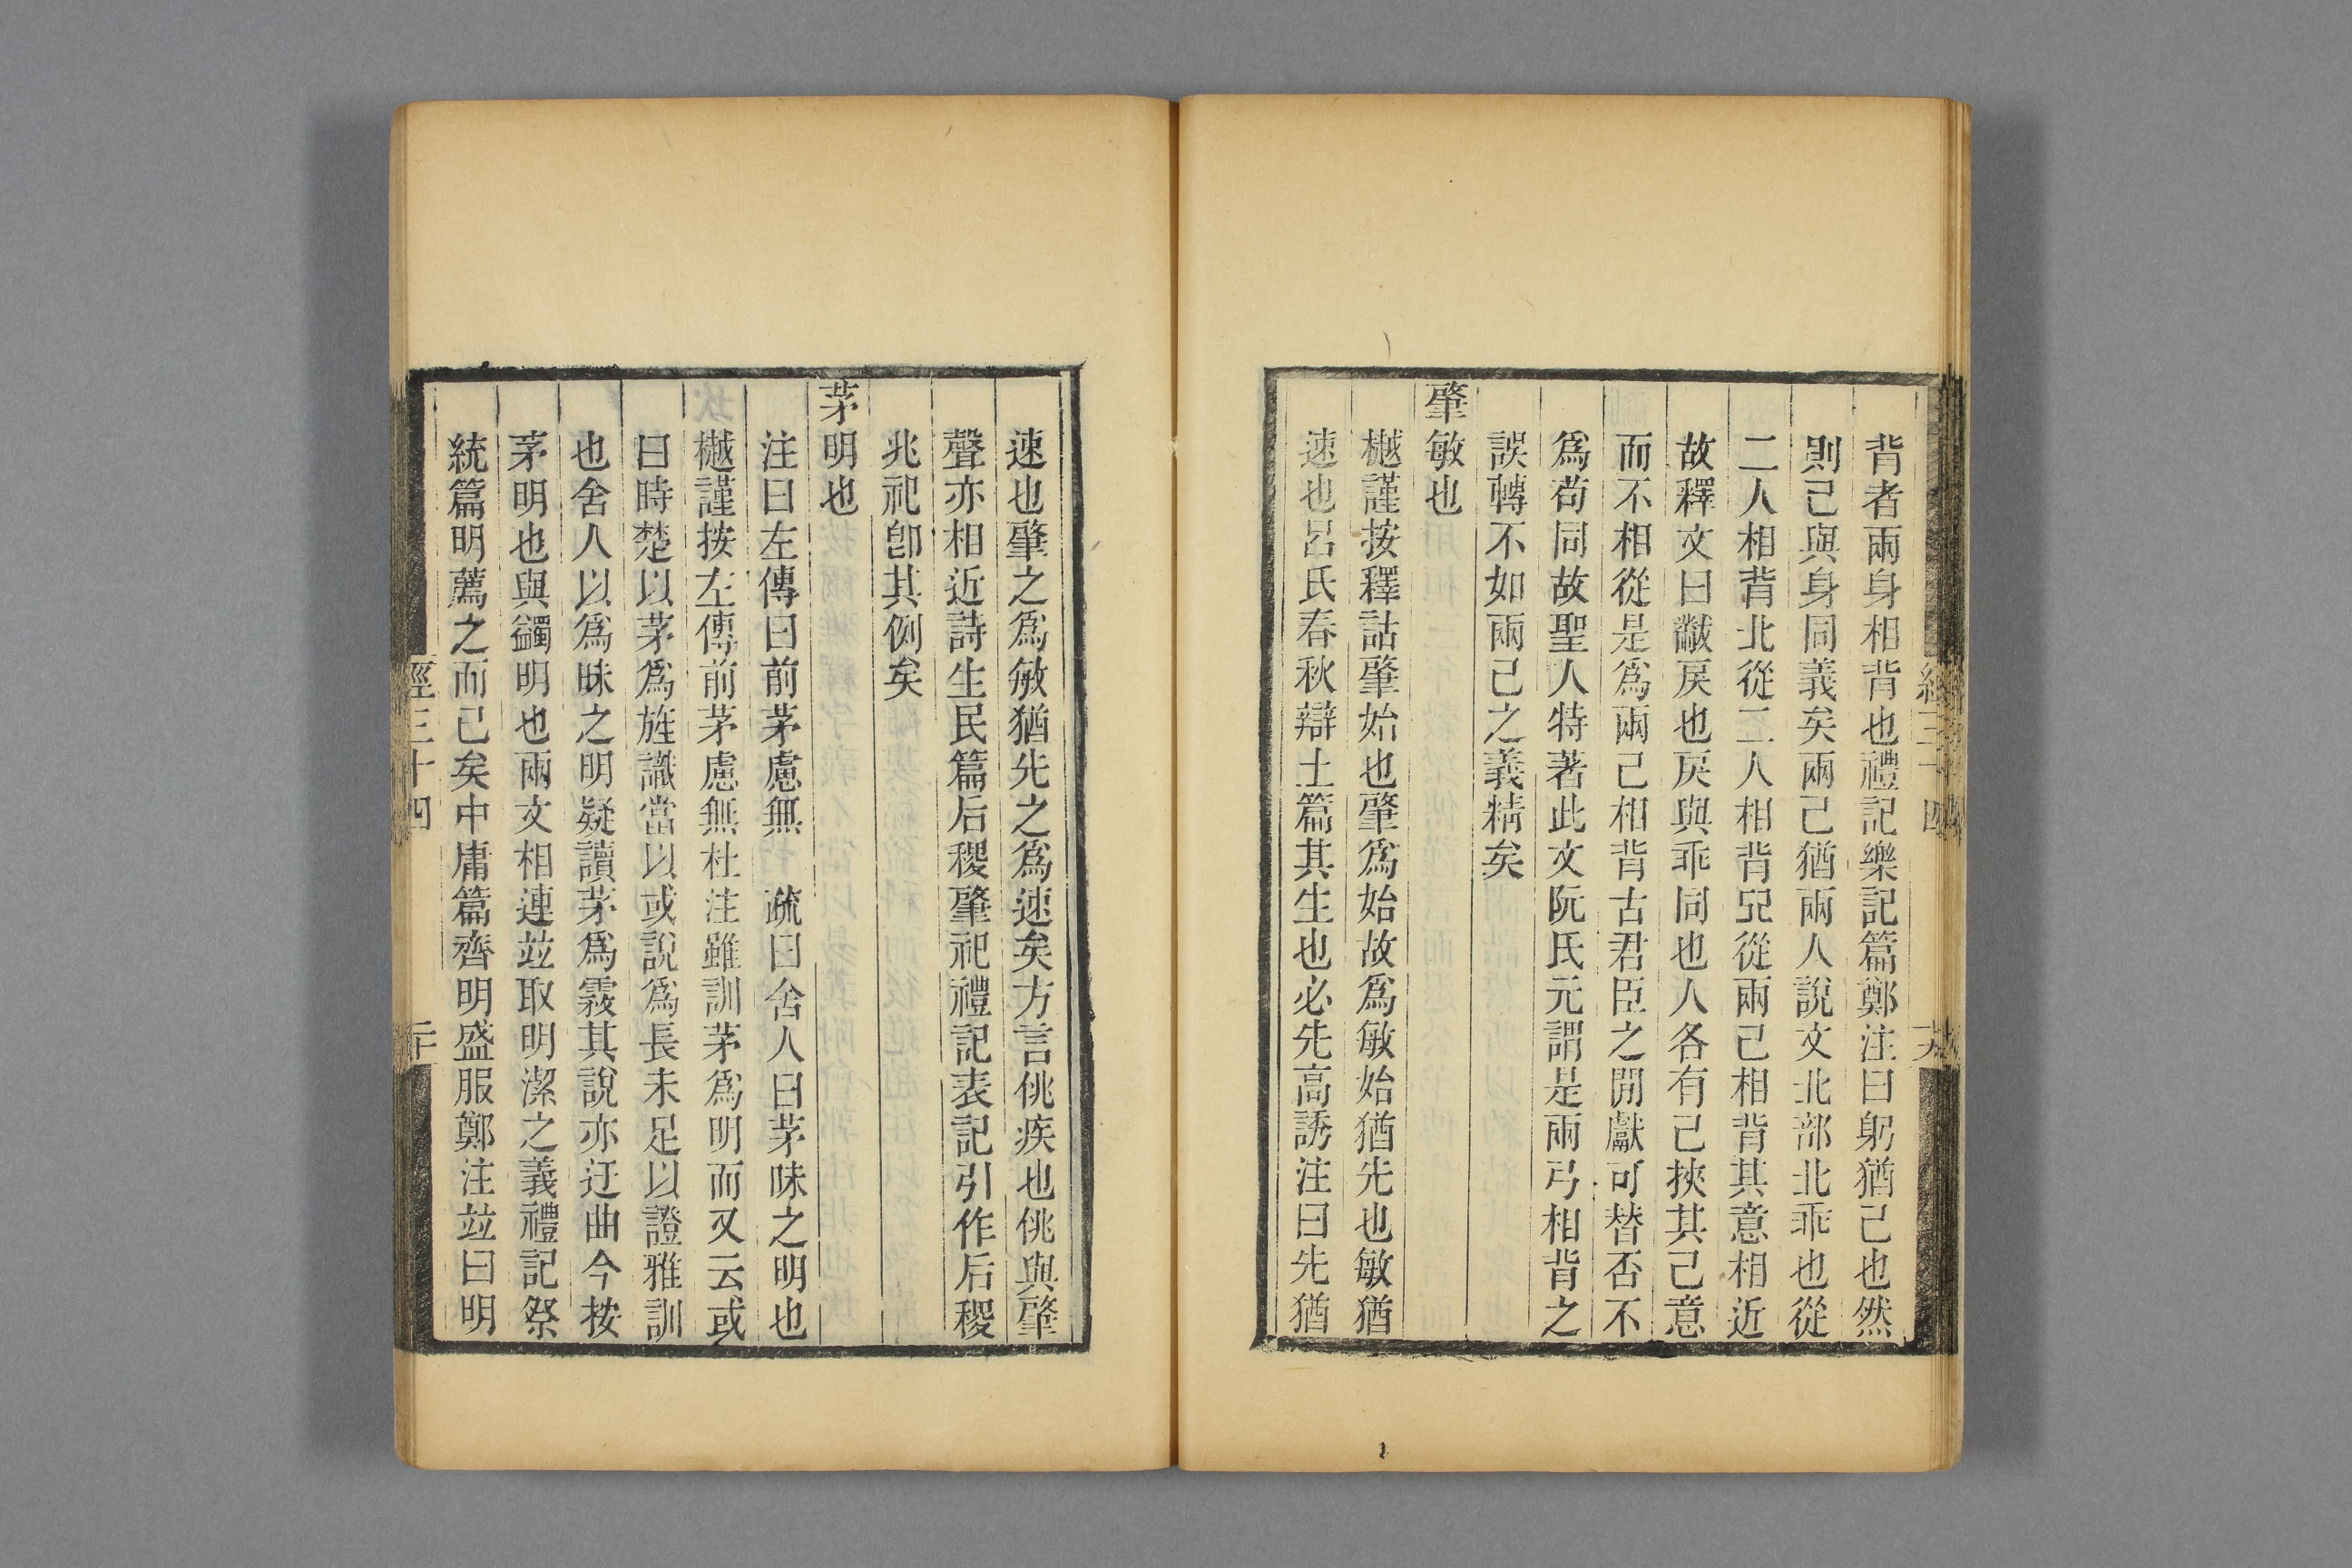 背者兩身相背也禮記樂記篇鄭注曰躬猶己也然
則己與身同義矣兩己猶兩人說文北部北乖也從
二人相背北從二人相背㠭從兩己相背其意相近
故釋文曰黻戾也戾與乖同也人各有己挾其己意
而不相從是爲兩己相背古君臣之閒獻可替否不
爲苟同故聖人特著此文阮氏元謂是兩弓相背之
誤轉不如兩己之義精矣
肈敏也
樾謹按釋詁肈始也肈爲始故爲敏始猶先也敏猶
速也呂氏春秋辯土篇其生也必先高誘注曰先猶
速也肈之爲敏猶先之爲速矣方言佻疾也佻與肈
聲亦相近詩生民篇后稷肈祀禮記表記引作后稷
兆祀卽其例矣
茅明也
注曰左傳曰前茅慮無 疏曰舍人曰茅昧之明也
樾謹按左傳前茅慮無杜注雖訓茅爲明而又云或
曰時楚以茅爲旌識當以或說爲長未足以證雅訓
也舍人以爲昧之明疑讀茅爲霧其說亦迂曲今按
茅明也與蠲明也兩文相連竝取明潔之義禮記祭
統篇明薦之而已矣中庸篇齊明盛服鄭注竝曰明
經三十四
二十